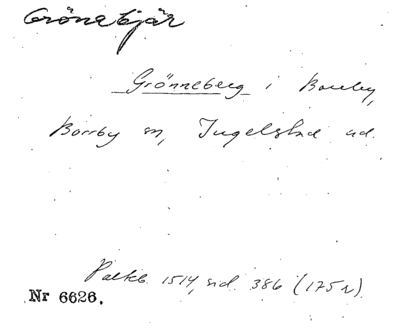 Grönebjär
Grönneberg i Borrby,
Borrby sn, Ingelstad hd.
Palteb. 1514, sid. 386 (175 r)
Nr 6626.